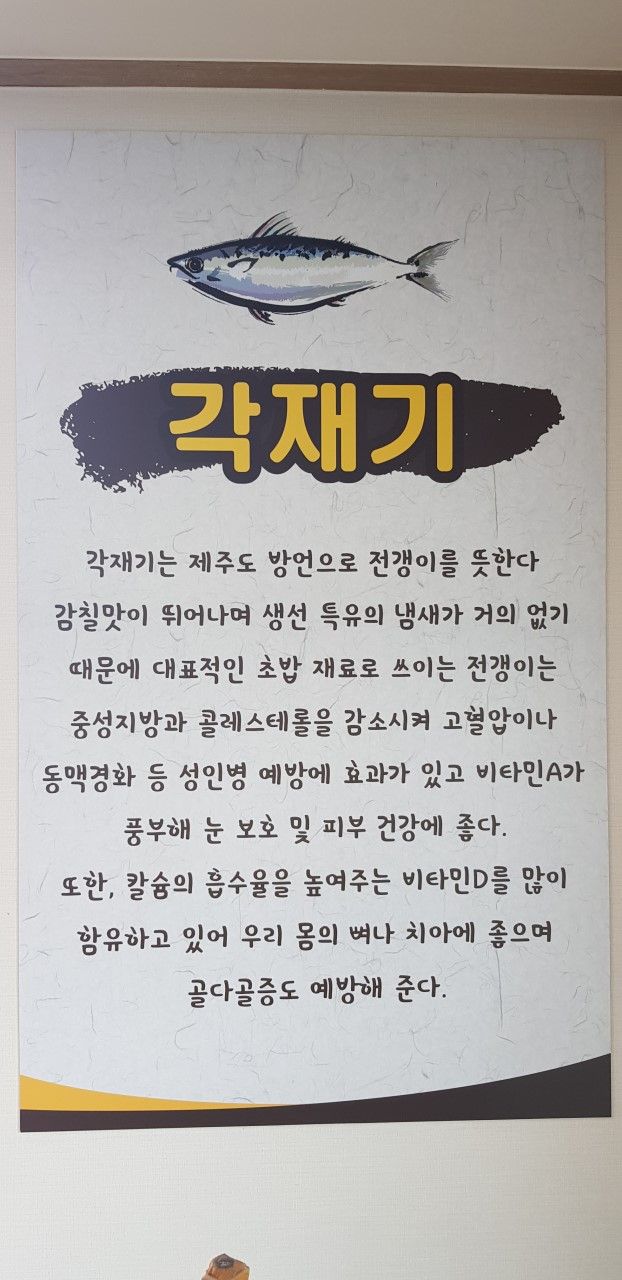 각재기
각재기는 제주도 방언으로 전갱이를 뜻한다
감칠맛이 뛰어나며 생선 특유의 냄새가 거의 없기
때문에 대표적인 초밥 재료로 쓰이는 전갱이는
중성지방과 콜레스테롤을 감소시켜 고혈압이나
동맥경화 등 성인병 예방에 효과가 있고 비타민A가
풍부해 눈 보호 및 피부 건강에 좋다.
또한, 칼슘의 흡수율을 높여주는 비타민D를 많이
함유하고 있어 우리 몸의 뼈나 치아에 좋으며
골다골증도 예방해 준다.